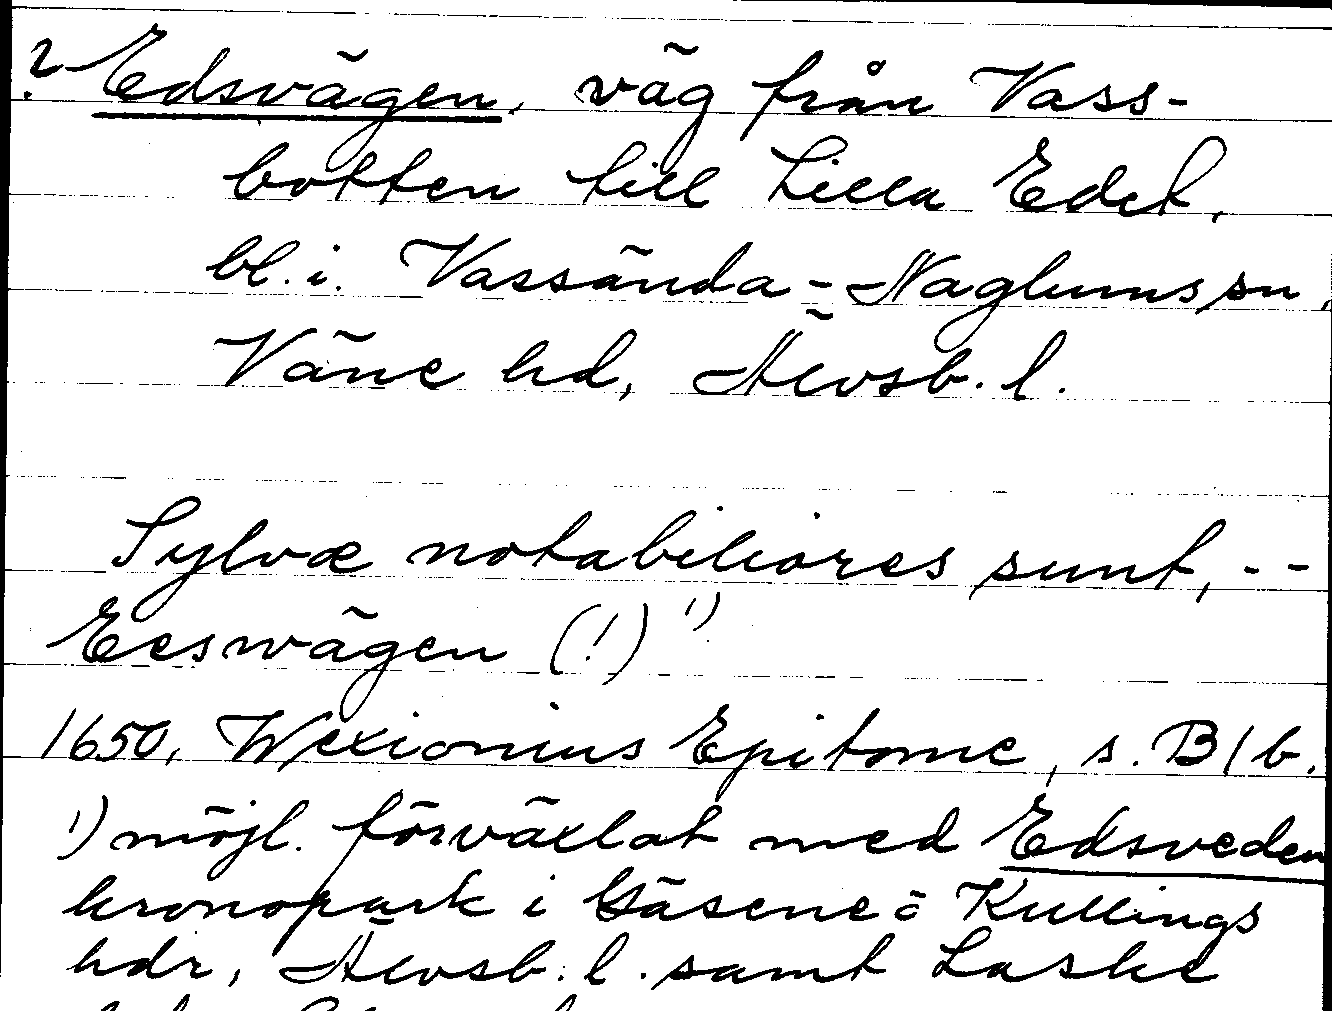 ? Edsvägen, väg från Vass-
botten till Lilla Edet,
bl. i. Vassända-Naglums sn,
Väne hd, Älvsb. l.
Sylvæ notabiliores sunt, --
Eeswägen (!) 1)
1650, Wexionius Epitome, s. B1b.
1) möjl. förväxlat med Edsveden
kronopark i Gäsene o Kullings
hdr, Älvsb. l. samt Laske